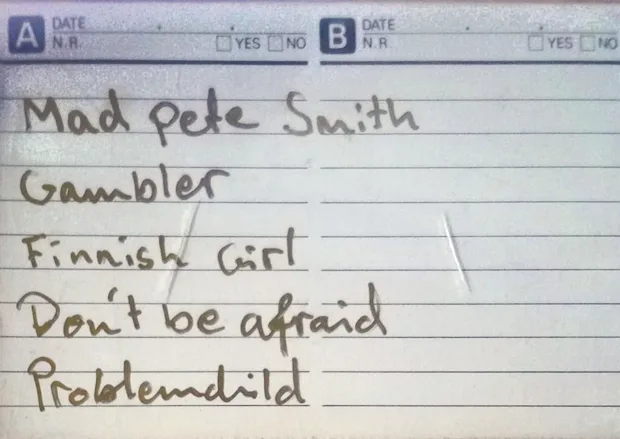 A DATE N.R. YES NO B DATE N.R. YES NO
Mad pete Smith
Gambler
Finnish Girl
Don't be afraid
Problemchild